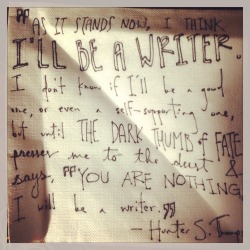 "AS IT STANDS NOW, I THINK
I'LL BE A WRITER.
I don't know if I'll be a good
one, or even a self-supporting one,
but until THE DARK THUMB of FATE
presses me to the dust &
says "YOU ARE NOTHING
I will be a writer."
- Hunter S.